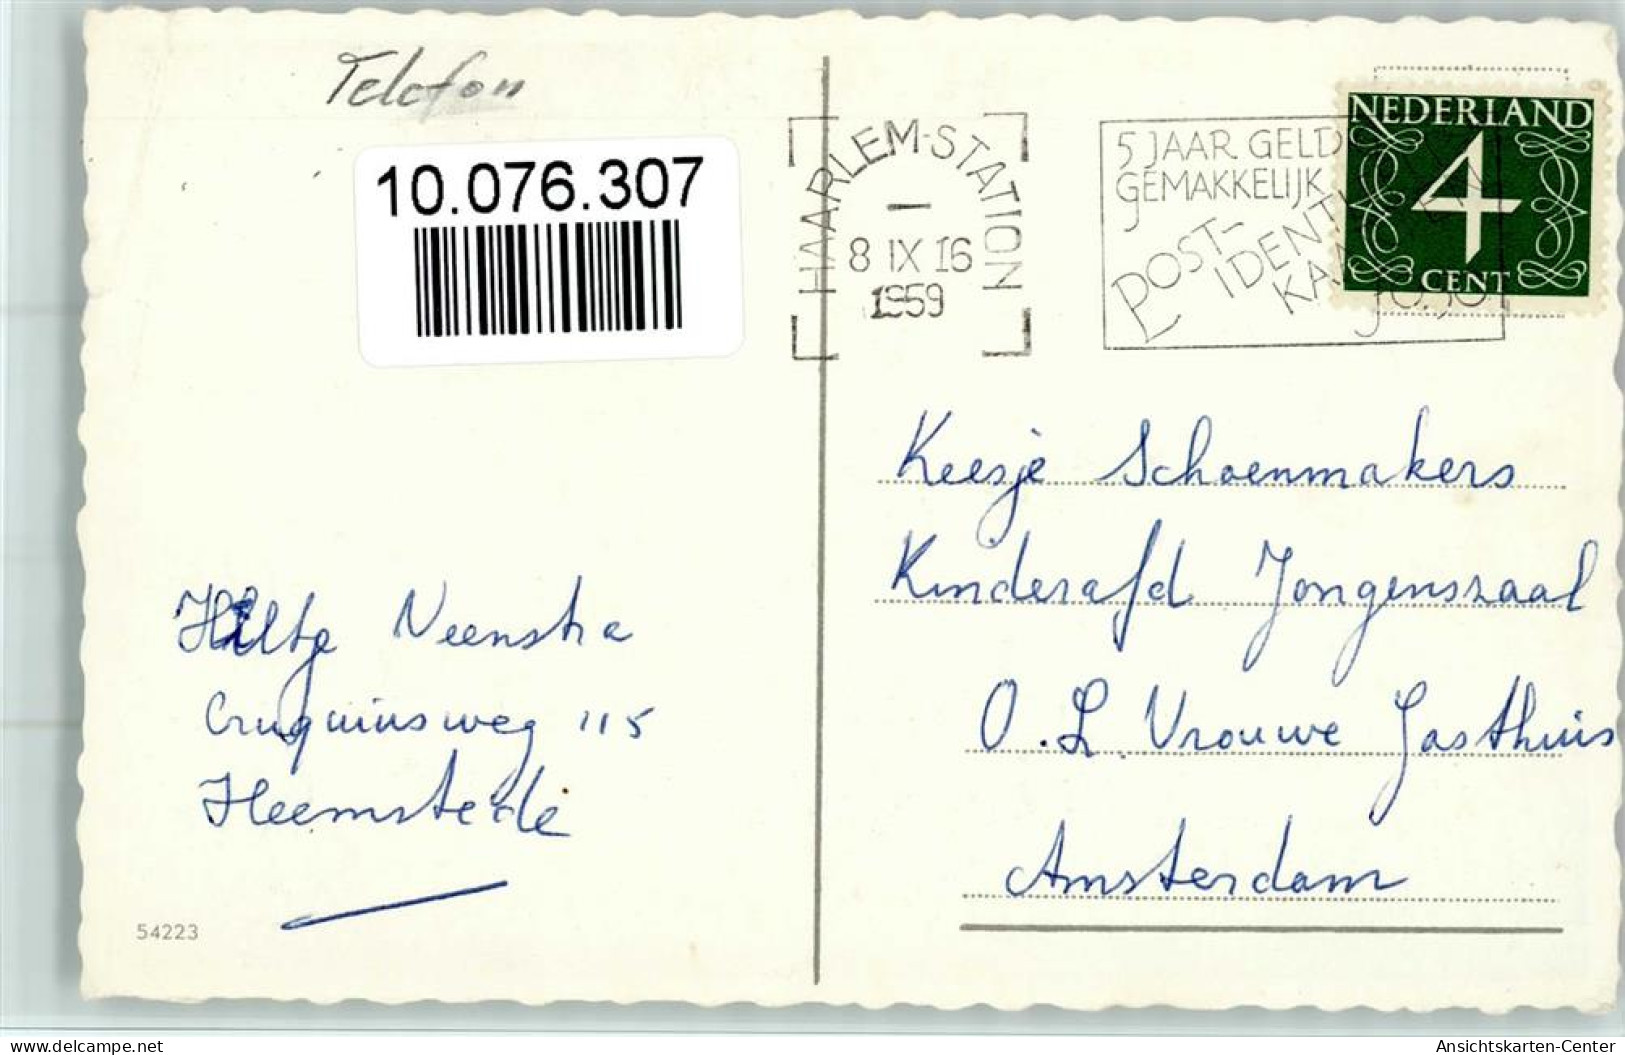 Telefon
10.076.307
HAARLEM-STATION
8 IX 16
1959
5 JAAR GELD
GEMAKKELIJK
POST-
IDENTI
KA
NEDERLAND
4
CENT
Keesje Schoenmakers
Kinderafd Jongenszaal
O.L. Vrouwe Gasthuis
Amsterdam
Hiltje Veenstra
Cruquiusweg 115
Heemstede
54223
delcampe.net
Ansichtskarten-Center